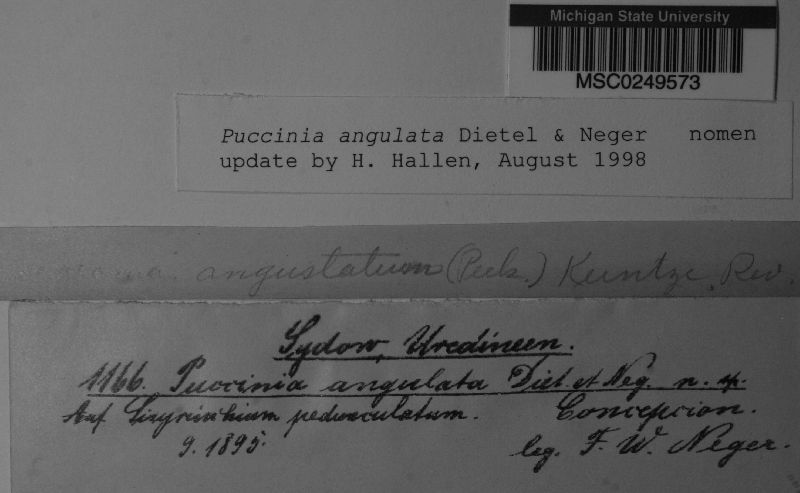 Michigan State University
MSC0249573
Puccinia angulata Dietel & Neger nomen
update by H. Hallen, August 1998
angustatum (Peck.) Kuntze, Rev.
Sydow, Uredineen.
1166. Puccinia angulata Diet. et Neg. n. sp.
Auf Sisyrinchium pedunculatum. Concepcion.
9. 1895. leg. F. W. Neger.